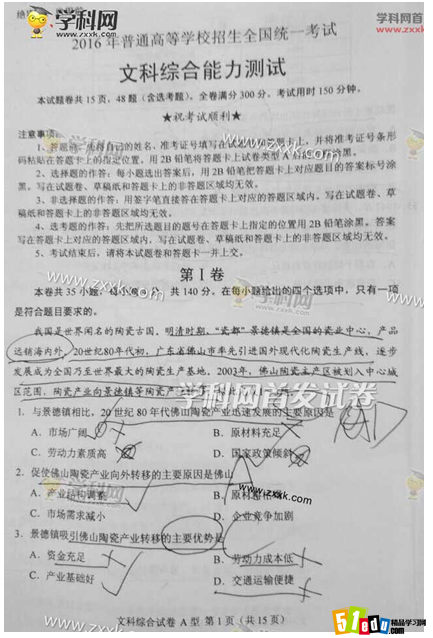 学科网
www.zxxk.com
学科网首发
zxxk.com
2016年普通高等学校招生全国统一考试
文科综合能力测试
本试题卷共15页,48题(含选考题)。全卷满分300分。考试用时150分钟。
★祝考试顺利★
注意事项:
码粘贴在答题卡上的指定位置。用2B铅笔将答题卡上试卷类型A
2、选择题的作答:每小题选出答案后,用2B铅笔把答题卡上对应题目的答案标号涂
黑。写在试题卷、草稿纸和答题卡上的非答题区域均无效。
3、非选择题的作答:用签字笔直接答在答题卡上对应的答题区域内。写在试题卷、草
稿纸和答题卡上的非答题区域均无效。
4、选考题的作答:先把所选题目的题号在答题卡上指定的位置用2B铅笔涂黑。答案
写在答题卡上对应的答题区域内,写在试题卷、草稿纸和答题卡上的非答题区域均无效。
5、考试结束后,请将本试题卷和答题卡一并上交。
第Ⅰ卷
本卷共35小题。每小题 分,共140分。在每小题给出的四个选项中,只有一项
是符合题目要求的。
我国是世界闻名的陶瓷古国。明清时期,“瓷都”景德镇是全国的瓷业中心,产品
远销海内外。20世纪80年代初,广东省佛山市率先引进国外现代化陶瓷生产线,逐步
发展成为全国乃至世界最大的陶瓷生产基地。2003年,佛山陶瓷主产区被划入中心城
区范围,陶瓷产业向景德镇等陶瓷产
学科网首发试卷
1. 与景德镇相比,20世纪80年代佛山陶瓷产业迅速发展的主要原因是
A. 市场广阔
B. 原材料充足
C. 劳动力素质高
D. 国家政策倾斜
2. 促使佛山陶瓷产业向外转移的主要原因是佛山
A. 产业结构调整
B. 原材料
C. 市场需求减小
D. 企业竞争加剧
3. 景德镇吸引佛山陶瓷产业转移的主要优势是
A. 资金充足
B. 劳动力成本低
C. 产业基础好
D. 交通运输便捷
文科综合试卷 A型 第1页(共15页)
51edu.com
精品学习网